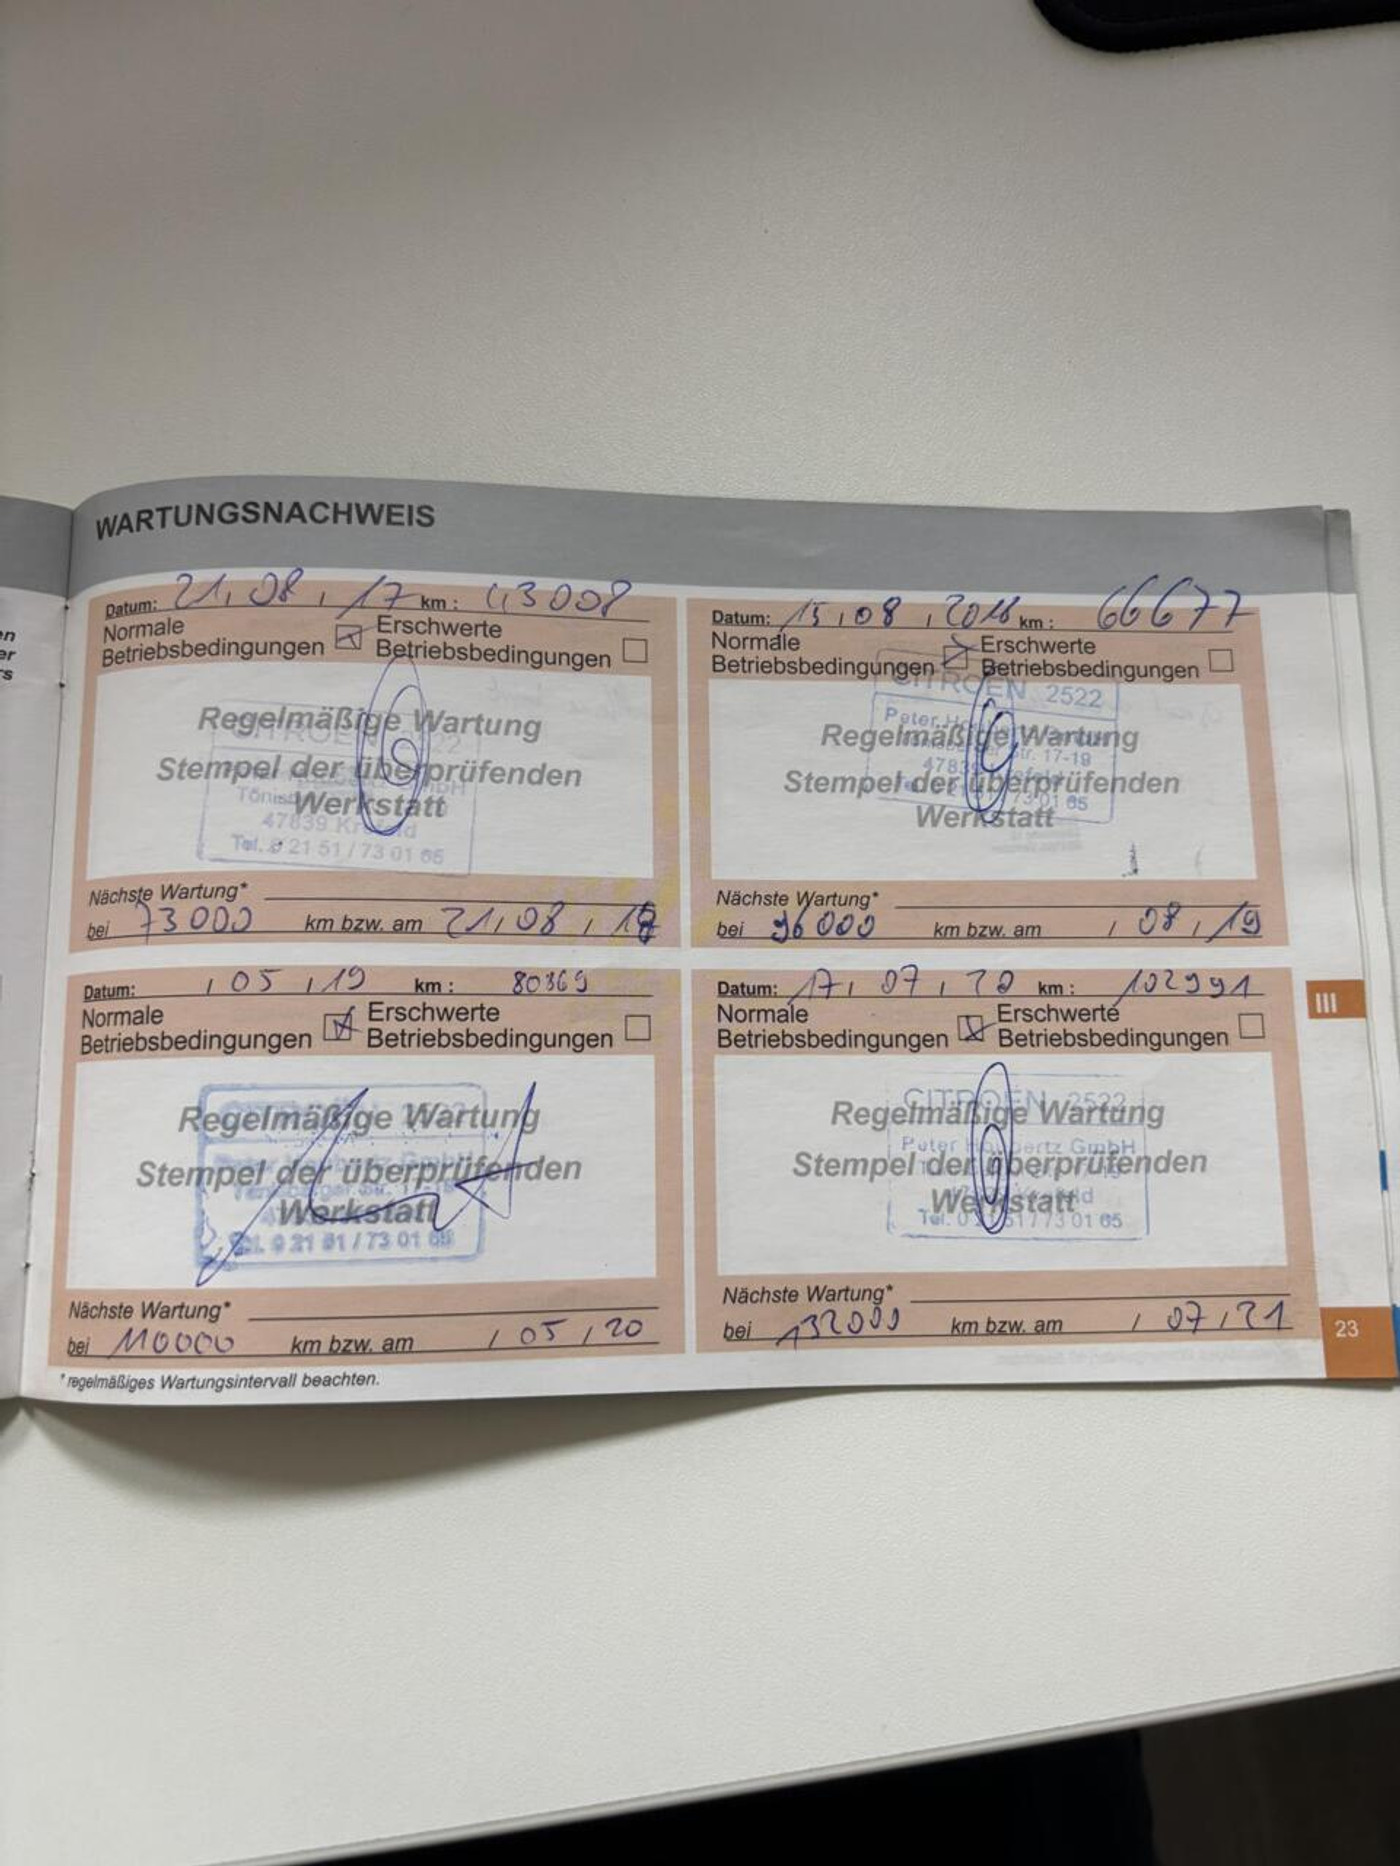 en
er
rs
WARTUNGSNACHWEIS
Datum: 21, 08, 17 km: 43008
Normale Betriebsbedingungen Erschwerte Betriebsbedingungen
CITROEN 2522
Regelmäßige Wartung
Stempel der überprüfenden
Werkstatt
47839 Krefeld
Tel. 0 21 51 / 73 01 65
Nächste Wartung*
bei 73000 km bzw. am 21, 08, 18
Datum: 15, 08, 2018 km: 66677
Normale Betriebsbedingungen Erschwerte Betriebsbedingungen
CITROEN 2522
Peter
Regelmäßige Wartung
Str. 17-19
Stempel der überprüfenden
73 01 65
Werkstatt
Nächste Wartung*
bei 96000 km bzw. am , 08, 19
Datum: , 05, 19 km: 80369
Normale Betriebsbedingungen Erschwerte Betriebsbedingungen
Regelmäßige Wartung
Stempel der überprüfenden
Werkstatt
Tel. 0 21 51 / 73 01 65
Nächste Wartung*
bei 110000 km bzw. am , 05, 20
Datum: 17, 07, 20 km: 102991
Normale Betriebsbedingungen Erschwerte Betriebsbedingungen
CITROEN 2522
Regelmäßige Wartung
Peter GmbH
Stempel der überprüfenden
Werkstatt
Tel. 0 21 51 / 73 01 65
Nächste Wartung*
bei 132000 km bzw. am , 07, 21
* regelmäßiges Wartungsintervall beachten.
III
23